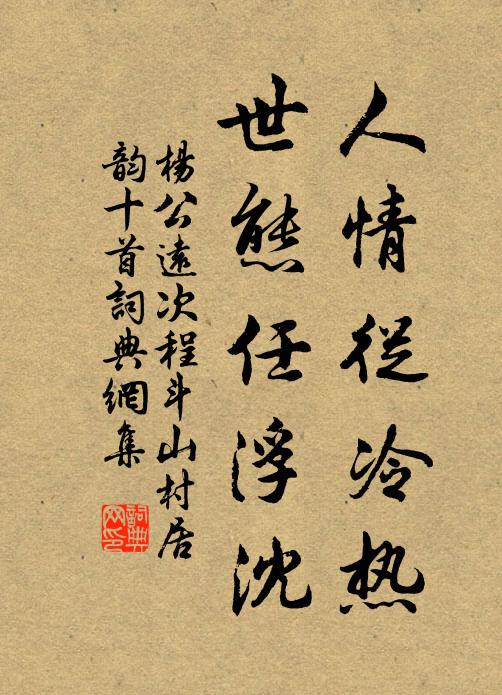 人情從冷热
世態任浮沈
楊公遠次程斗山村居
韵十首詞典網集
詞典网印